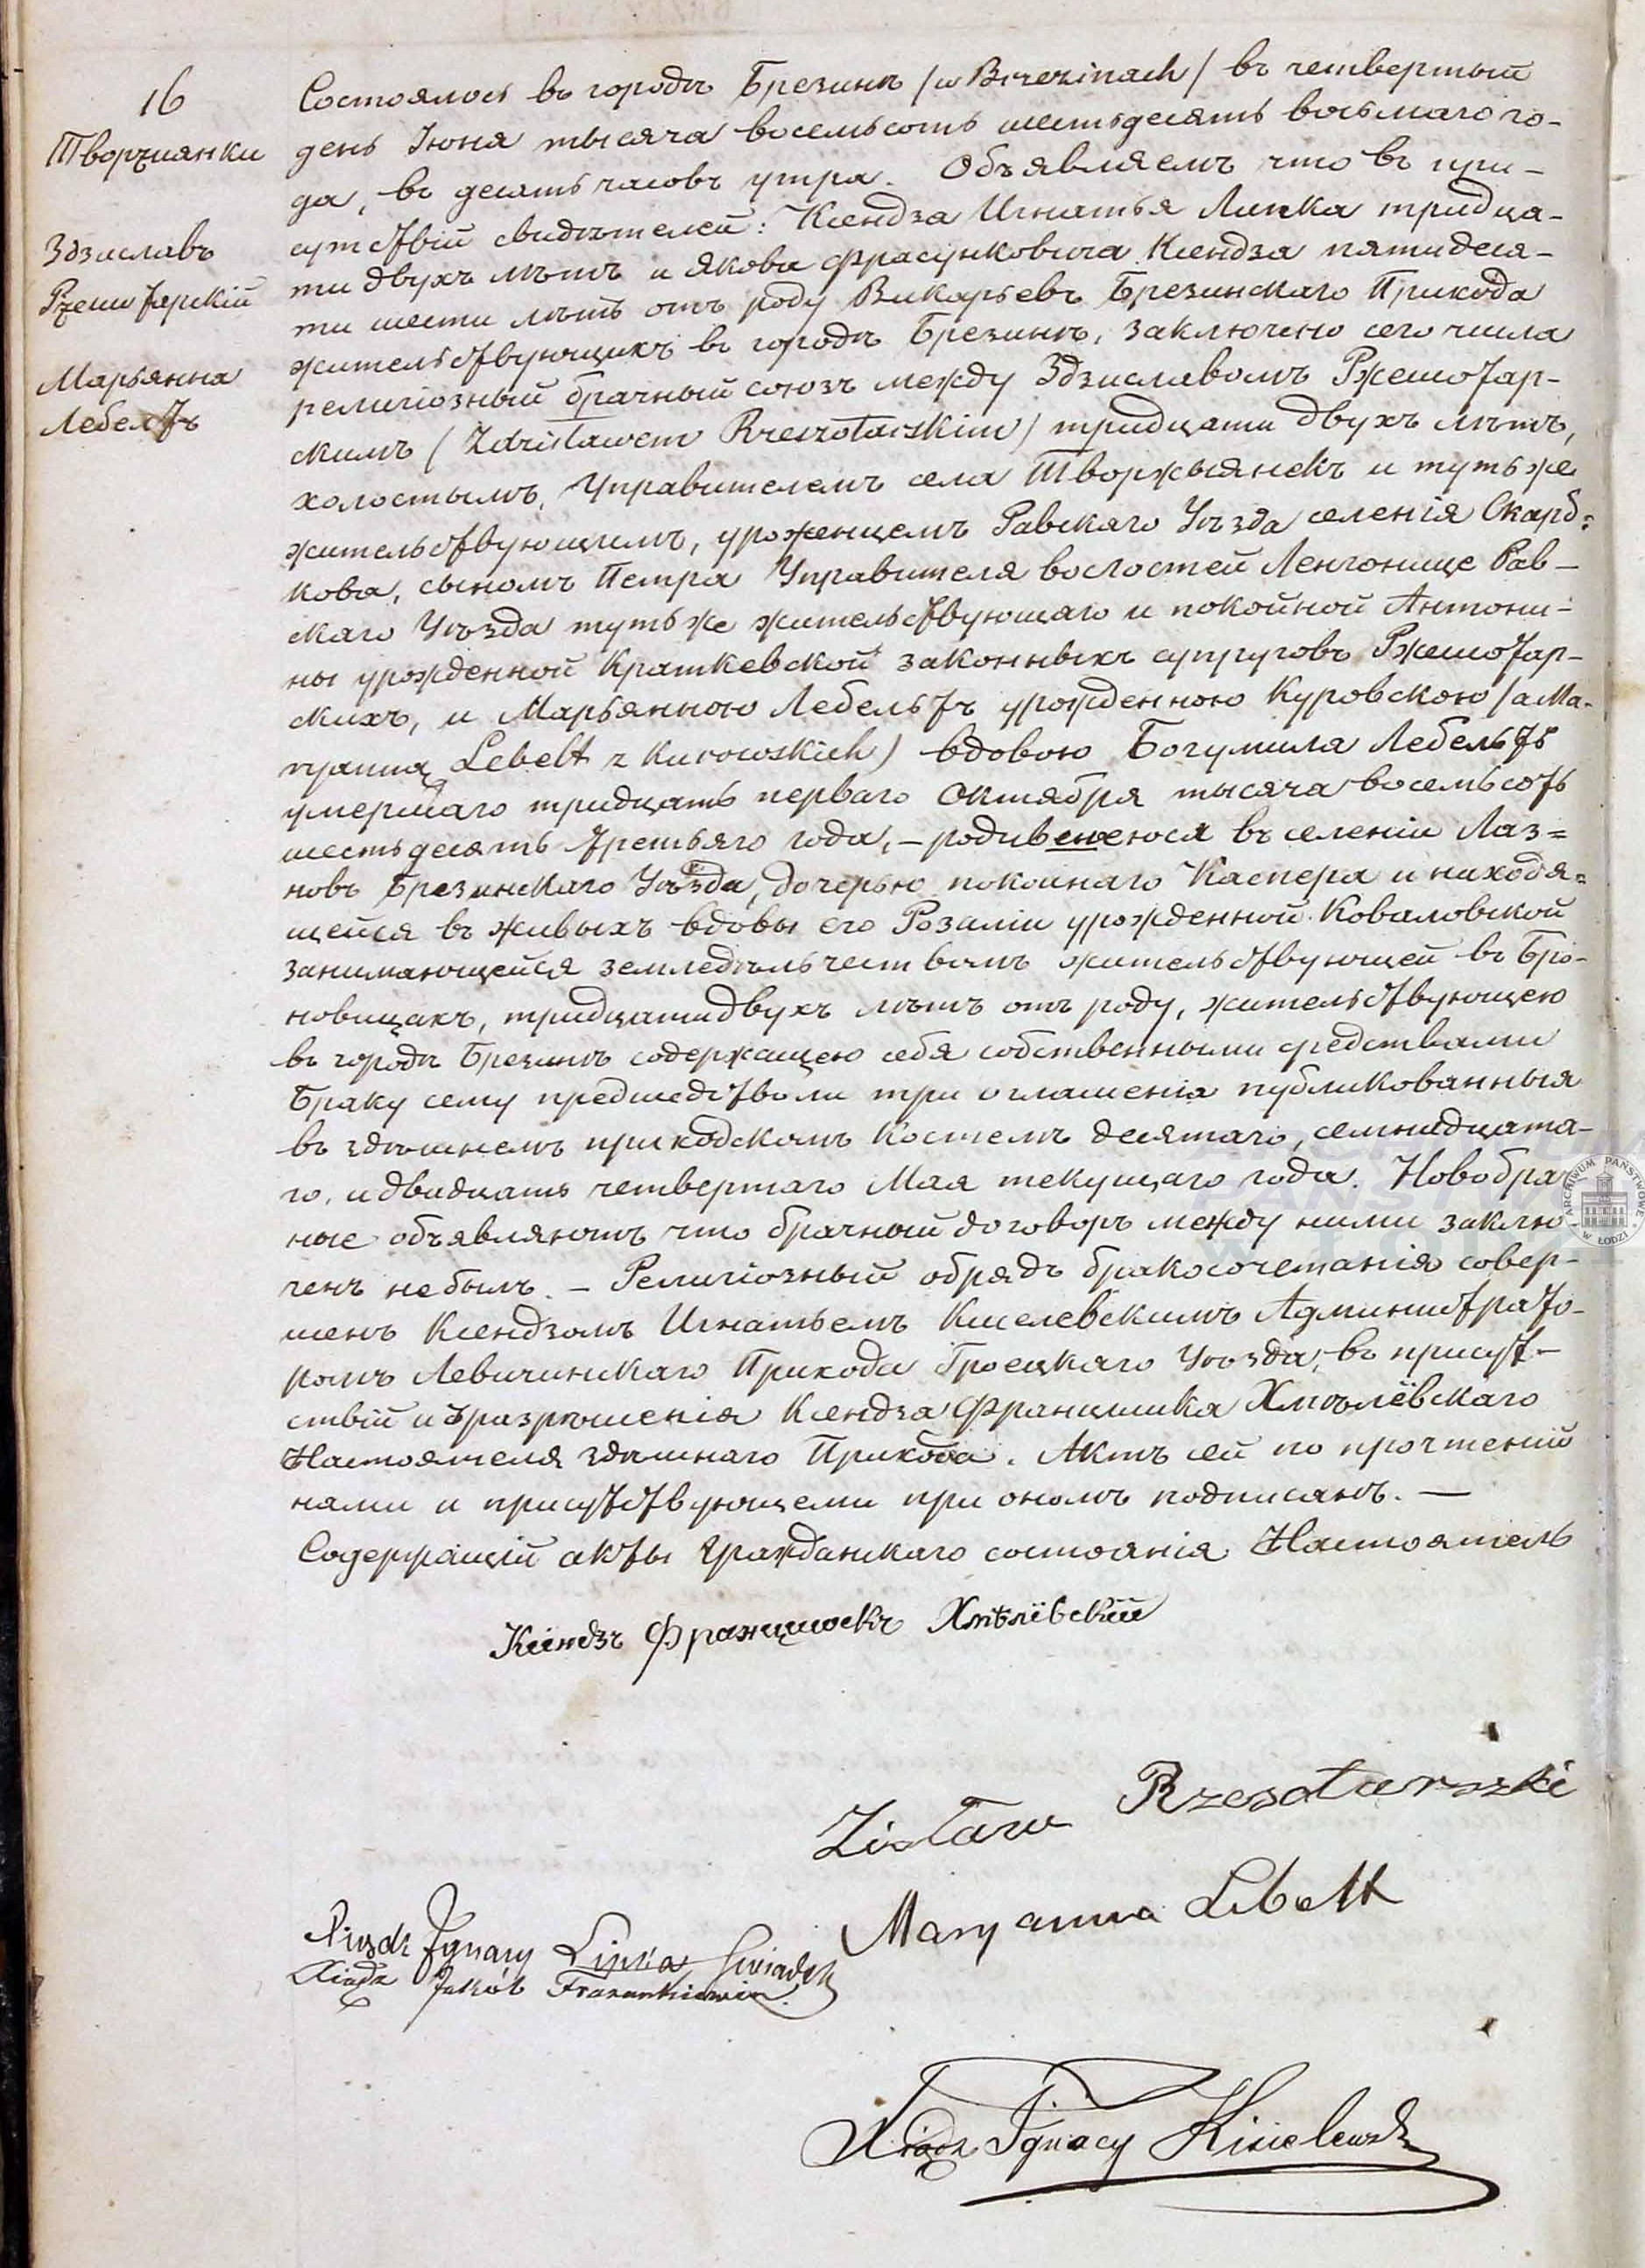 16
Творъиянки
Здзиславъ
Рzешотарскій
Марьянна
Лебельтъ
Состоялось въ городѣ Брезинѣ /w Brzezinach/ въ четвертый
день Іюня тысяча восемьсотъ шестьдесятъ восьмаго го-
да, въ десять часовъ утра. Объявляемъ что въ при-
сутствіи свидѣтелей: Ксендза Игнатья Липка тридца-
ти двухъ лѣтъ и Якова Фрасунковича Ксендза пятидеся-
ти шести лѣтъ отъ роду Викарьевъ Брезинскаго Прихода
жительствующихъ въ городѣ Брезинѣ, заключено сего числа
религіозный брачный союзъ между Здзиславомъ Ржешотар-
скимъ (Zdzisławem Rzeszotarskim) тридцати двухъ лѣтъ,
холостымъ, Управителемъ села Творжыянекъ и тутъ же
жительствующимъ, уроженцемъ Равскаго Уѣзда селенія Скарб=
кова, сыномъ Петра Управителя волостей Ленгонице Рав-
скаго Уѣзда тутъ же жительствующаго и покойной Антони-
ны урожденной Краткевской законныхъ супруговъ Ржешотар-
скихъ, и Марьянною Лебельтъ урожденною Куровскою /a Ma-
ryanną Lebelt z Kurowskich) вдовою Богумила Лебельтъ
умершаго тридцать перваго Октября тысяча восемьсотъ
шестьдесятъ третьяго года, – родивенеюся въ селеніи Лаз=
новъ Брезинскаго Уѣзда, дочерью покойнаго Каспера и находя=
щейся въ живыхъ вдовы его Розаліи урожденной Коваловской
занимающейся земледѣльчествомъ жительствующей въ Бро-
новицахъ, тридцати двухъ лѣтъ отъ роду, жительствующею
въ городѣ Брезинѣ содержащею себя собственными средствами
Браку сему предшедствовали три оглашенія публикованныя
въ здѣшнемъ приходскомъ Костелѣ десятаго, семнадцата-
го, и двадцать четвертаго Мая текущаго года. Новобрач
ные объявляютъ что брачный договоръ между ними заклю
ченъ не былъ. – Религіозный обрядъ бракосочетанія совер-
шенъ Ксендзомъ Игнатьемъ Киселевскимъ Администрато-
ромъ Левичинскаго Прихода Гроецкаго Уѣзда, въ присут-
ствіи и разрѣшенія Ксендза Францишка Хмѣлёвскаго
Настоятеля здѣшнаго Прихода. Актъ сей по прочтеніи
нами и присутствующеми при ономъ подписанъ. —
Содержащій акты гражданскаго состоянія Настоятель
Ксіндзъ Францишекъ Хмѣлівскій
Zisław Rzesotarszki
Maryanna Libelt
Xiądz Ignacy Lipka Świadek
Xiądz Jakób Frasunkiewicz.
Xiądz Ignacy Kisielewski
ARCHIWUM PAŃSTWOWE W ŁODZI